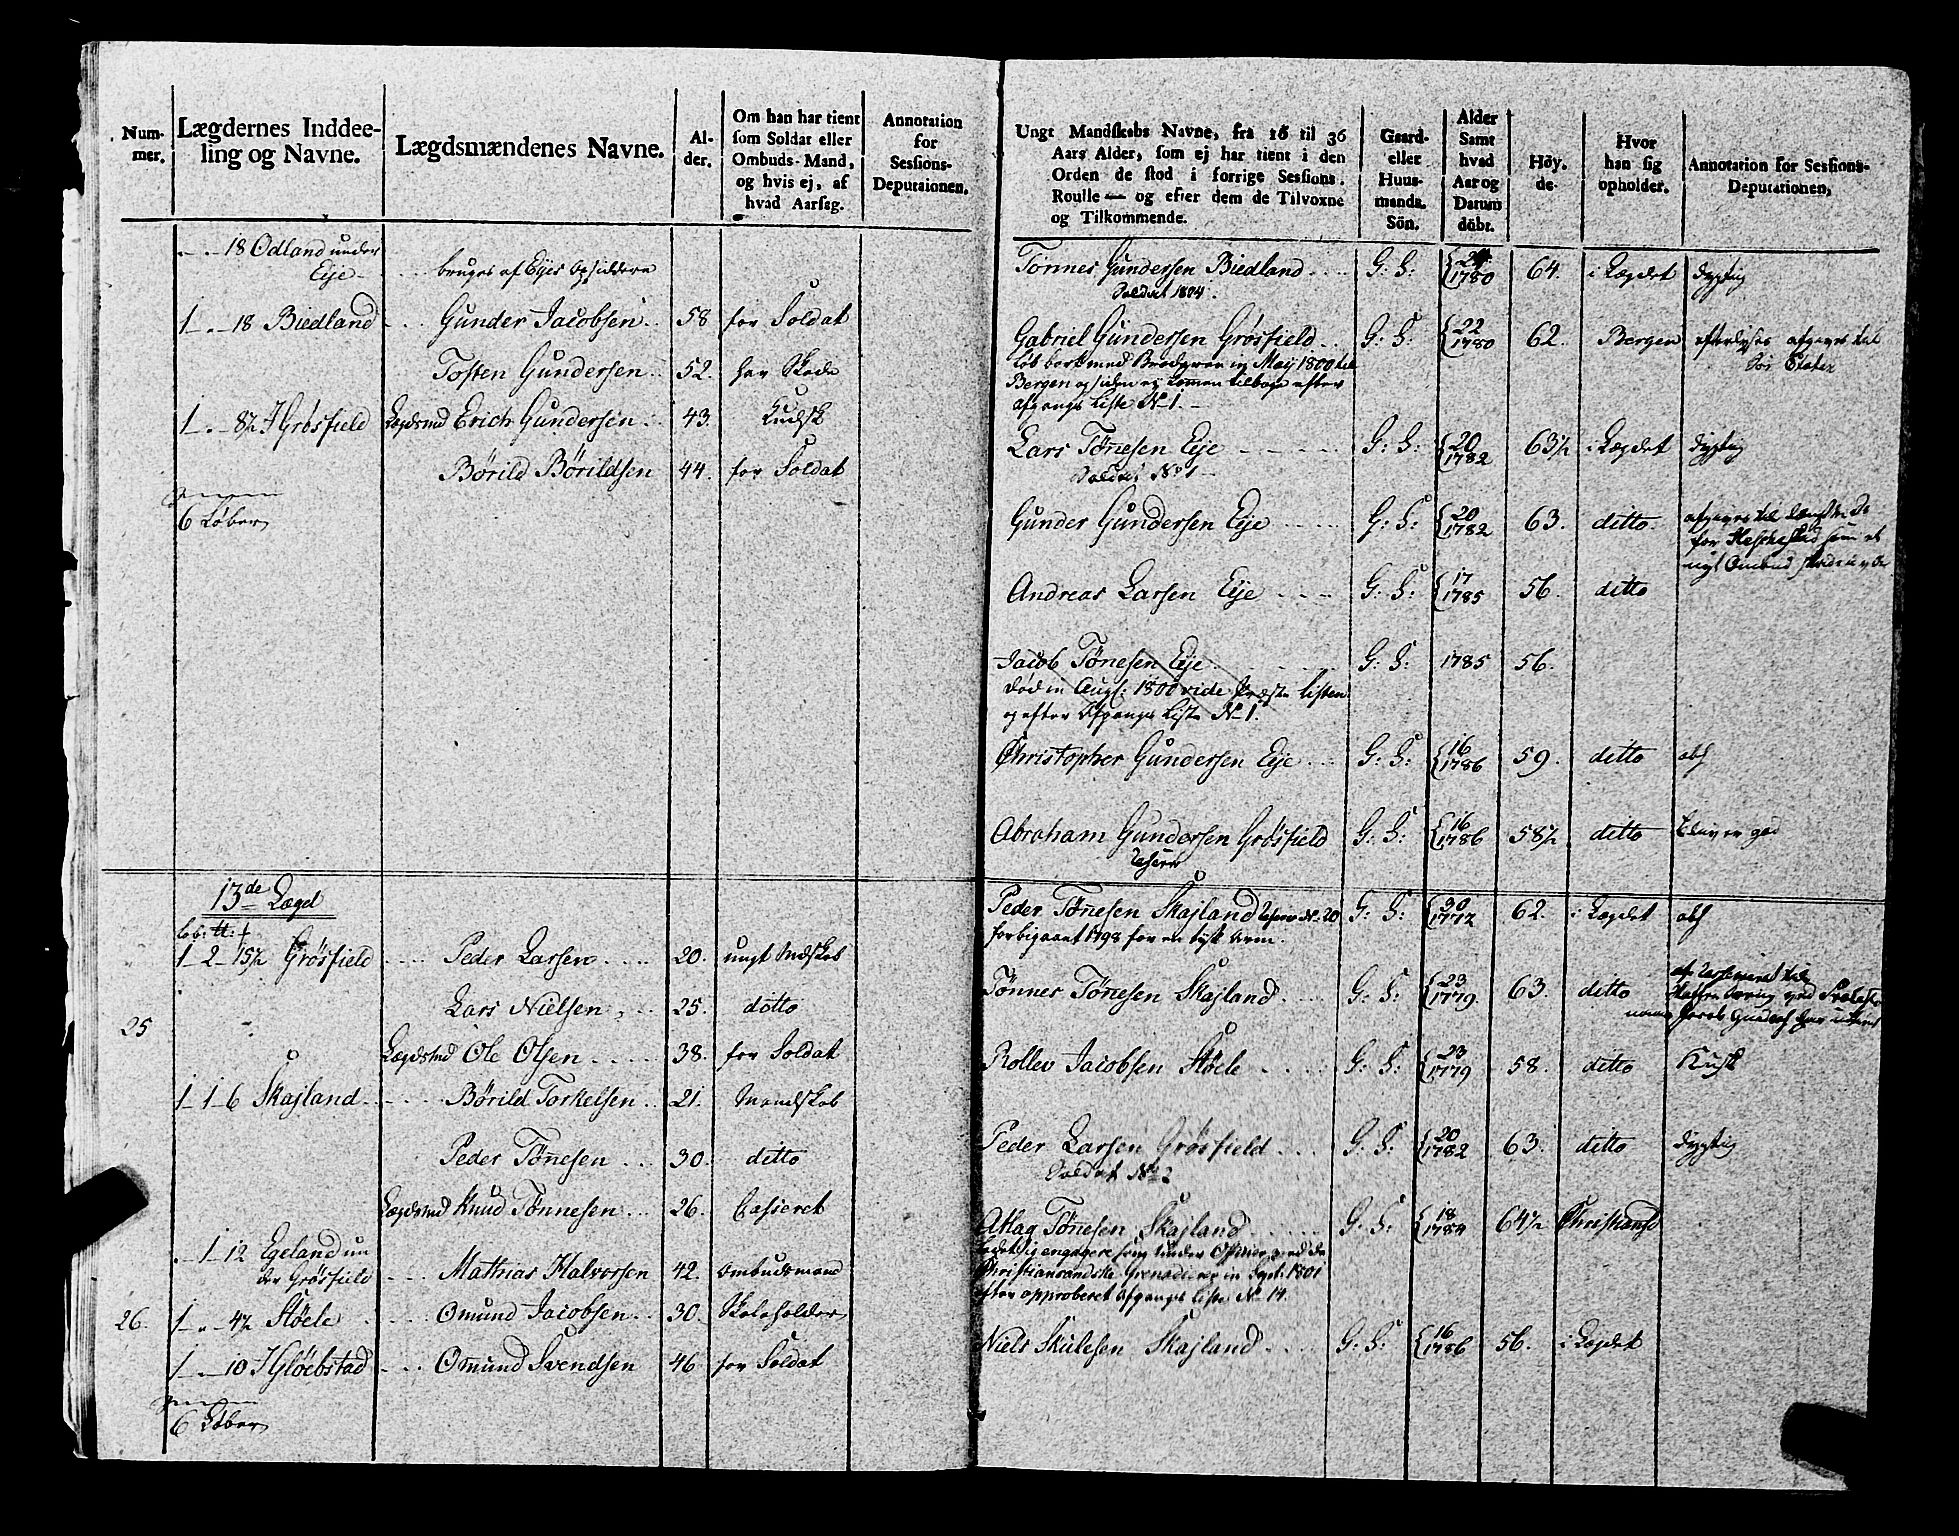 Num-
mer.
Lægdernes Inddee-
ling og Navne.
Lægdsmændenes Navne.
Al-
der.
Om han har tient
som Soldat eller
Ombuds-Mand,
og hvis ej, af
hvad Aarsag.
Annotation
for
Sessions-
Deputaionen.
18 Odland under
Eje
bruges af Ejes Opsiddere
1 - 18 Biedland Gunder Jacobsen 58 for Soldat
Tosten Gundersen 52. har Skade
1 - 8½ Grösfield Lægdsmd Erich Gundersen 43. Kudsk
Börild Börildsen 44. for Soldat
6 Løber
13de Lægd
1 - 2 - 15½ Grösfield Peder Larsen 20. ungt Mdskab
Lars Nielsen 25. ditto
25
Lægdsmd Ole Olsen 38. for Soldat
1 - 1 - 6 Skajland Börild Torkelsen 21. Mandskab
Peder Tönesen 30. ditto
Lægdsmd Knud Tönnesen 26. Casseret
1 - 12 Egeland un
der Grösfield Mathias Halvorsen 42. Ombudsmand
26. 1 - 4½ Stöele Omund Jacobsen 30. Skoleholder
1 - 10 Glöebstad Omund Svendsen 46 for Soldat
6 Løber
Ungt Mandskabs Navne, fra 16 til 36
Aars Alder, som ej har tient i den
Orden de stod i forrige Sessions-
Roulle — og efter dem de Tilvoxne
og Tilkommende.
Gaard-
eller
Huus-
mands
Sön.
Alder
Samt
hvad
Aar og
Datum
döbt.
Höy-
de.
Hvor
han sig
opholder.
Annotation for Sessions-
Deputationen,
Tönnes Gundersen Biedland G: S: 1780 64. i Lægdet dygtig
Soldat 1804.
Gabriel Gundersen Grösfield G: S: 22 1780 62. Bergen efterlyses afgaar til
løb bort med Brodgren in Maij 1800 til
Bergen og siden ej kommen tilbage efter
afgangs Liste No 1.
Lars Tönesen Eje G: S: 20 1782 63½ i Lægdet dygtig
Soldat No 1
Gunder Gundersen Eje G: S: 20 1782 63. ditto.
Andreas Larsen Eje G: S: 17 1785 56. ditto
Jacob Tönesen Eje G: S: 1785 56.
død in Augs: 1800 vide Præste Listen
og efter Afgangs Liste No 1.
Christopher Gundersen Eje G: S: 16 1786 59. ditto obs
Abraham Gundersen Grösfield G: S: 16 1786 58½ ditto bliver god
Peder Tönesen Skajland No 20 G: S: 30 1772 62. i Lægdet obs
forbigaaet 1798 for en tyk Arm.
Tönnes Tönesen Skajland G: S: 23 1779 63. ditto
Rollev Jacobsen Stöele G: S: 23 1779 58. ditto Kusk
Peder Larsen Grösfield G: S: 20 1782 63. ditto dygtig
Soldat No 2
Atlag Tönesen Skajland G: S: 18 1784 64½ Christiansd
ladet sig engagere som under Officier ved de
Christiansandske Grenaderer in Sept: 1801
efter approberet Afgangs Liste No 14.
Niels Skulesen Skajland G: S: 16 1786 56. i Lægdet